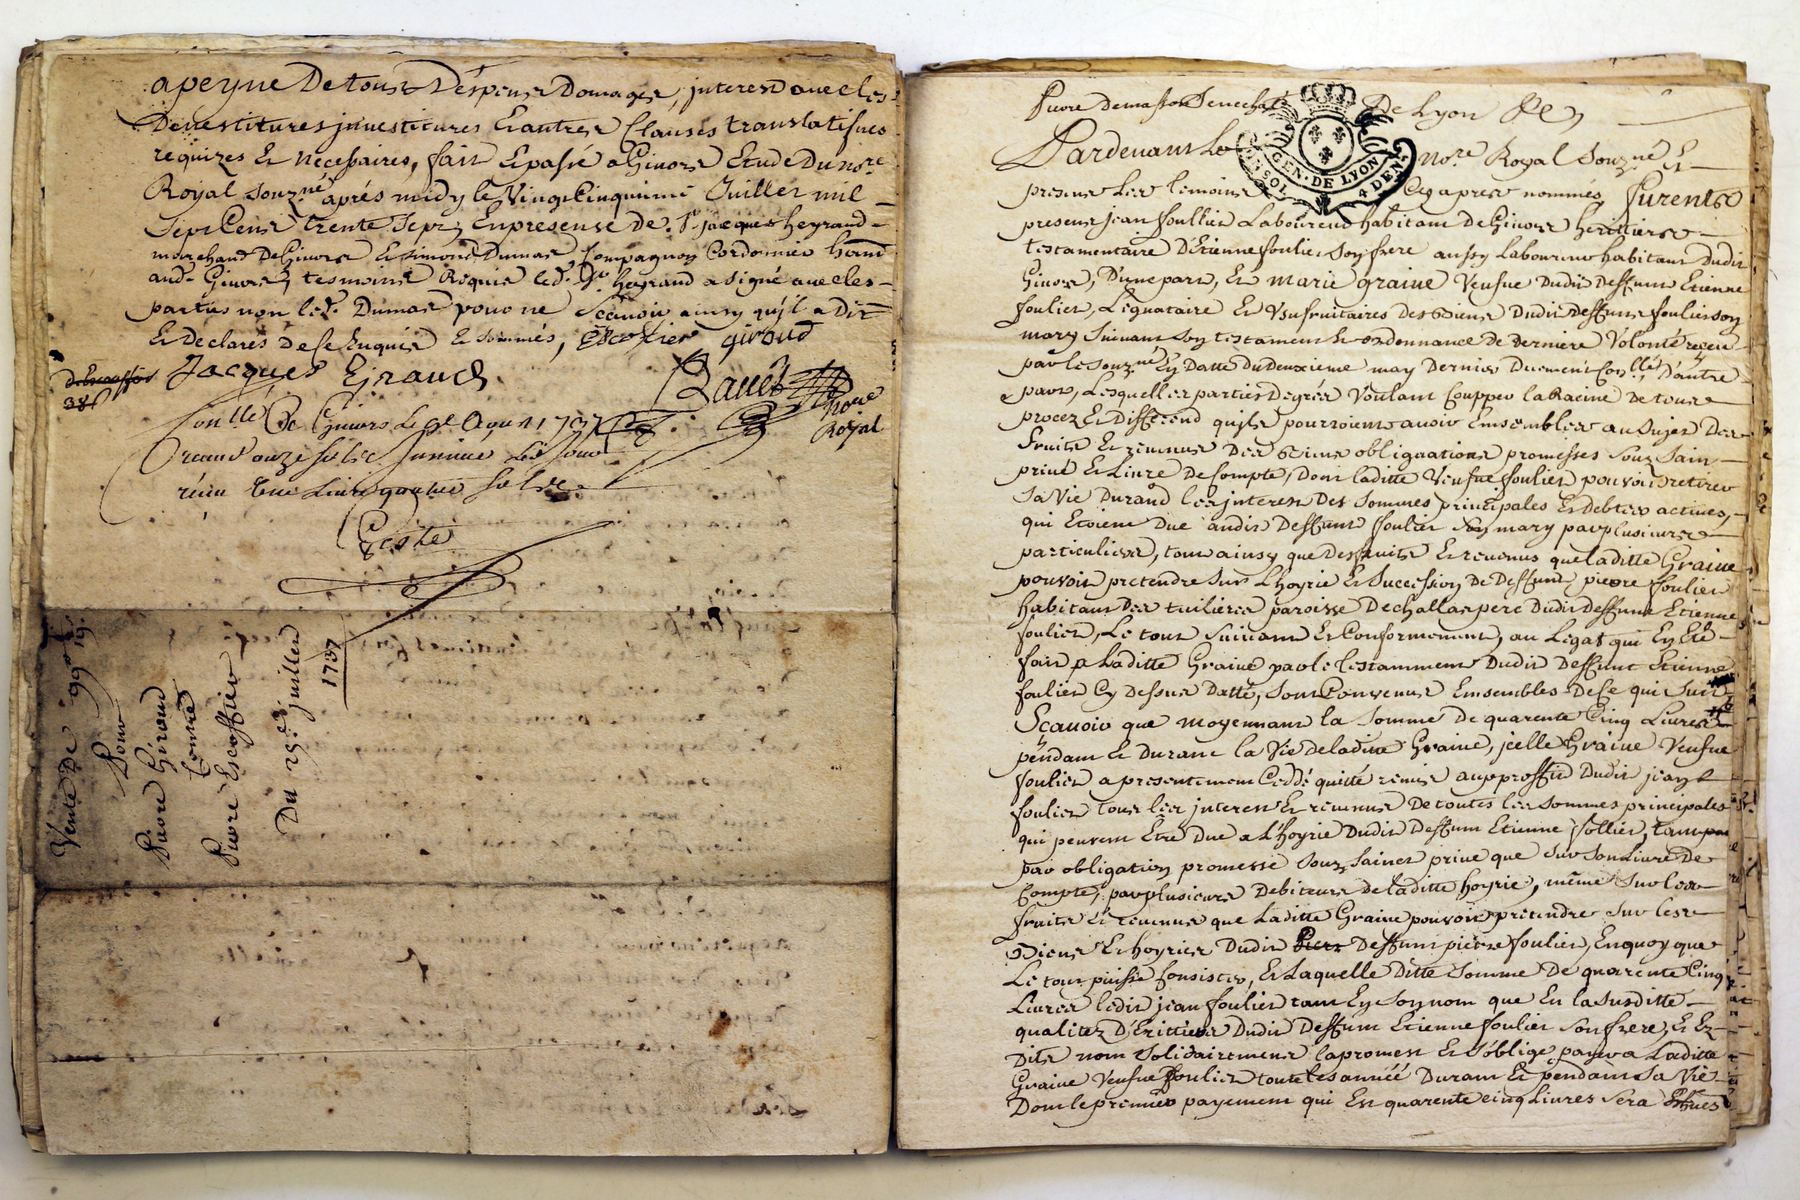 apeyne De tous Despens Domages, interest avec les
Devestitures jnvestitures Et autres Clauses translatifves
requizes Et necessaires, fait Et passé a Givors Etude Du no.re
Royal Souz.né aprés midy le Vingt Cinquieme Juillet mil
Sept Cens trente Sept, En presense De S.r jacques heyraud
marchand De Givors Et Simond Dumas Compagnon Cordonnier
aud. Givors, tesmoins Requis led. S.r heyraud a signé avec les
parties non led. Dumas pour ne Scavoir ainsy qu'il a Dit
Et Declarés De Ce Enquis Et sommés, Escoffier giroud
Jacques Eyraud
38
No.re
Royal
Con.llé a Givors Le Aoust 1737
Receu onze sols
une Livre quatre sols
Coste
Vente De 99.# 19.s
Pour
Pierre Giroud
Contre
Pierre Escoffier
Du 25.e juillet
1737
De Lyon
GEN. DE LYON
SOL 4 DEN
Pardevant Le no.re Royal Souz.né Et
presens Les temoins Cy apres nommés, furent
present jean foullier Laboureur habitant De Givors heritiers
testamentaire D'Etienne foulier son frere aussy Laboureur habitant Dudit
Givors, D'une part, Et marie graine Veufve Dudit Deffunt Etienne
foulier, Leguataire Et Usufruitaires Des Biens Dudit Deffunt foulier son
mary Suivant Son testament Et ordonnance De Derniere Volonté reçeu
par le Souz.né En Datte Du Deuxieme may Dernier Duement Con.llé D'autre
part, Lesquelles parties De gré Voulant Coupper la Racine De tous
procez Et Differend quils pourroient avoir Ensembles au Sujet Des
fruits Et revenus Des Biens obliguations promesses Souz Sain
privé Et Livre De Compte, Dont laditte Veufve foulier pouvoit retirer
Sa Vie Durand les interest Des Sommes principales Et debtes actives,
qui Etoient Due audit Deffunt foulier Son mary par plusieurs
particuliers, tout ainsy que Des fruits Et revenus que laditte Graine
pouvoit pretendre Sur L'hoyrie Et Succession De Deffunt pierre foulier
habitant Des tuilieres paroisse De challas pere Dudit Deffunt Etienne
foulier, Le tout Suivant Et Conformement, au Legat qui En Eté
fait a Laditte Graine par le testamment Dudit Deffunt Etienne
foulier Cy Dessus Datté, Sont Convenus Ensembles De Ce qui Suit
Scavoir que moyennant la Somme De quarente Cinq Livres
pendant Et Durant la Vie De laditte Graine, jcelle Graine Veufve
foulier a presentement Ceddé quitté remis au proffit Dudit jean
foulier tous les interest Et revenus De toutes les Sommes principales
qui peuvent Etre Due a L'hoyrie Dudit Deffunt Etienne follier, tant
par obligation promesse Souz Saint privé que Sur Son Livre De
Compte, par plusieurs Debiteurs De laditte hoyrie, même Sur les
fruits Et revenus que Laditte Graine pouvoit pretendre Sur les
Biens Et hoyries Dudit Deffunt pierre foulier, En quoy que
Le tout puisse Consister, Et Laquelle Ditte Somme De quarente Cinq
Livres ledit jean foulier tant En Son nom que En la Susditte
qualitez D'Erittiers Dudit Deffunt Etienne foulier Son frere, Et Ez
Dits nom Solidairement la promest Et S'oblige, payer a Laditte
Graine Veufve foulier toute les année Durant Et pendant Sa Vie
Dont le premier payement qui Est quarente cinq Livres Sera